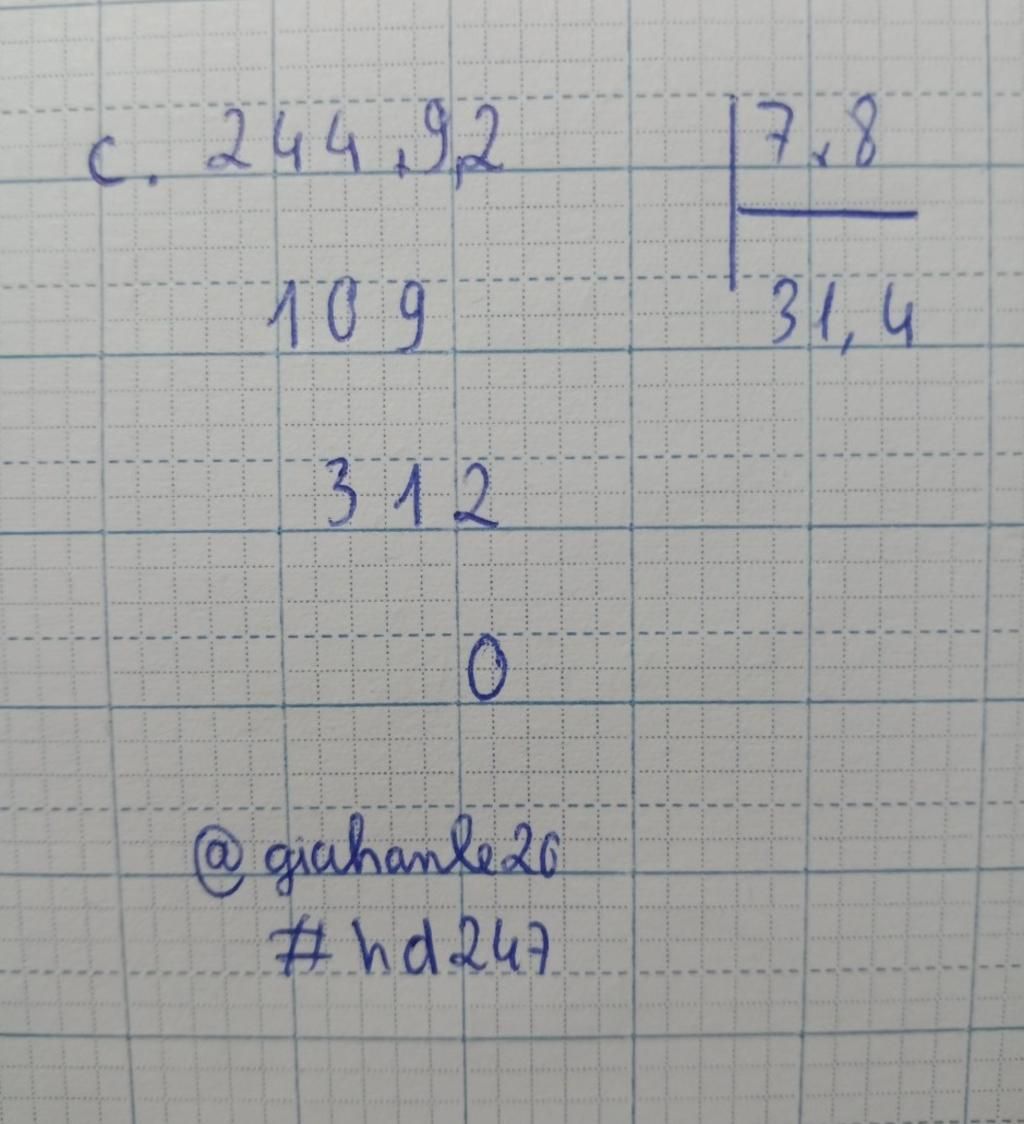 c. 244,9,2 7,8
31,4
109
312
0
@giahanle26
#hd247